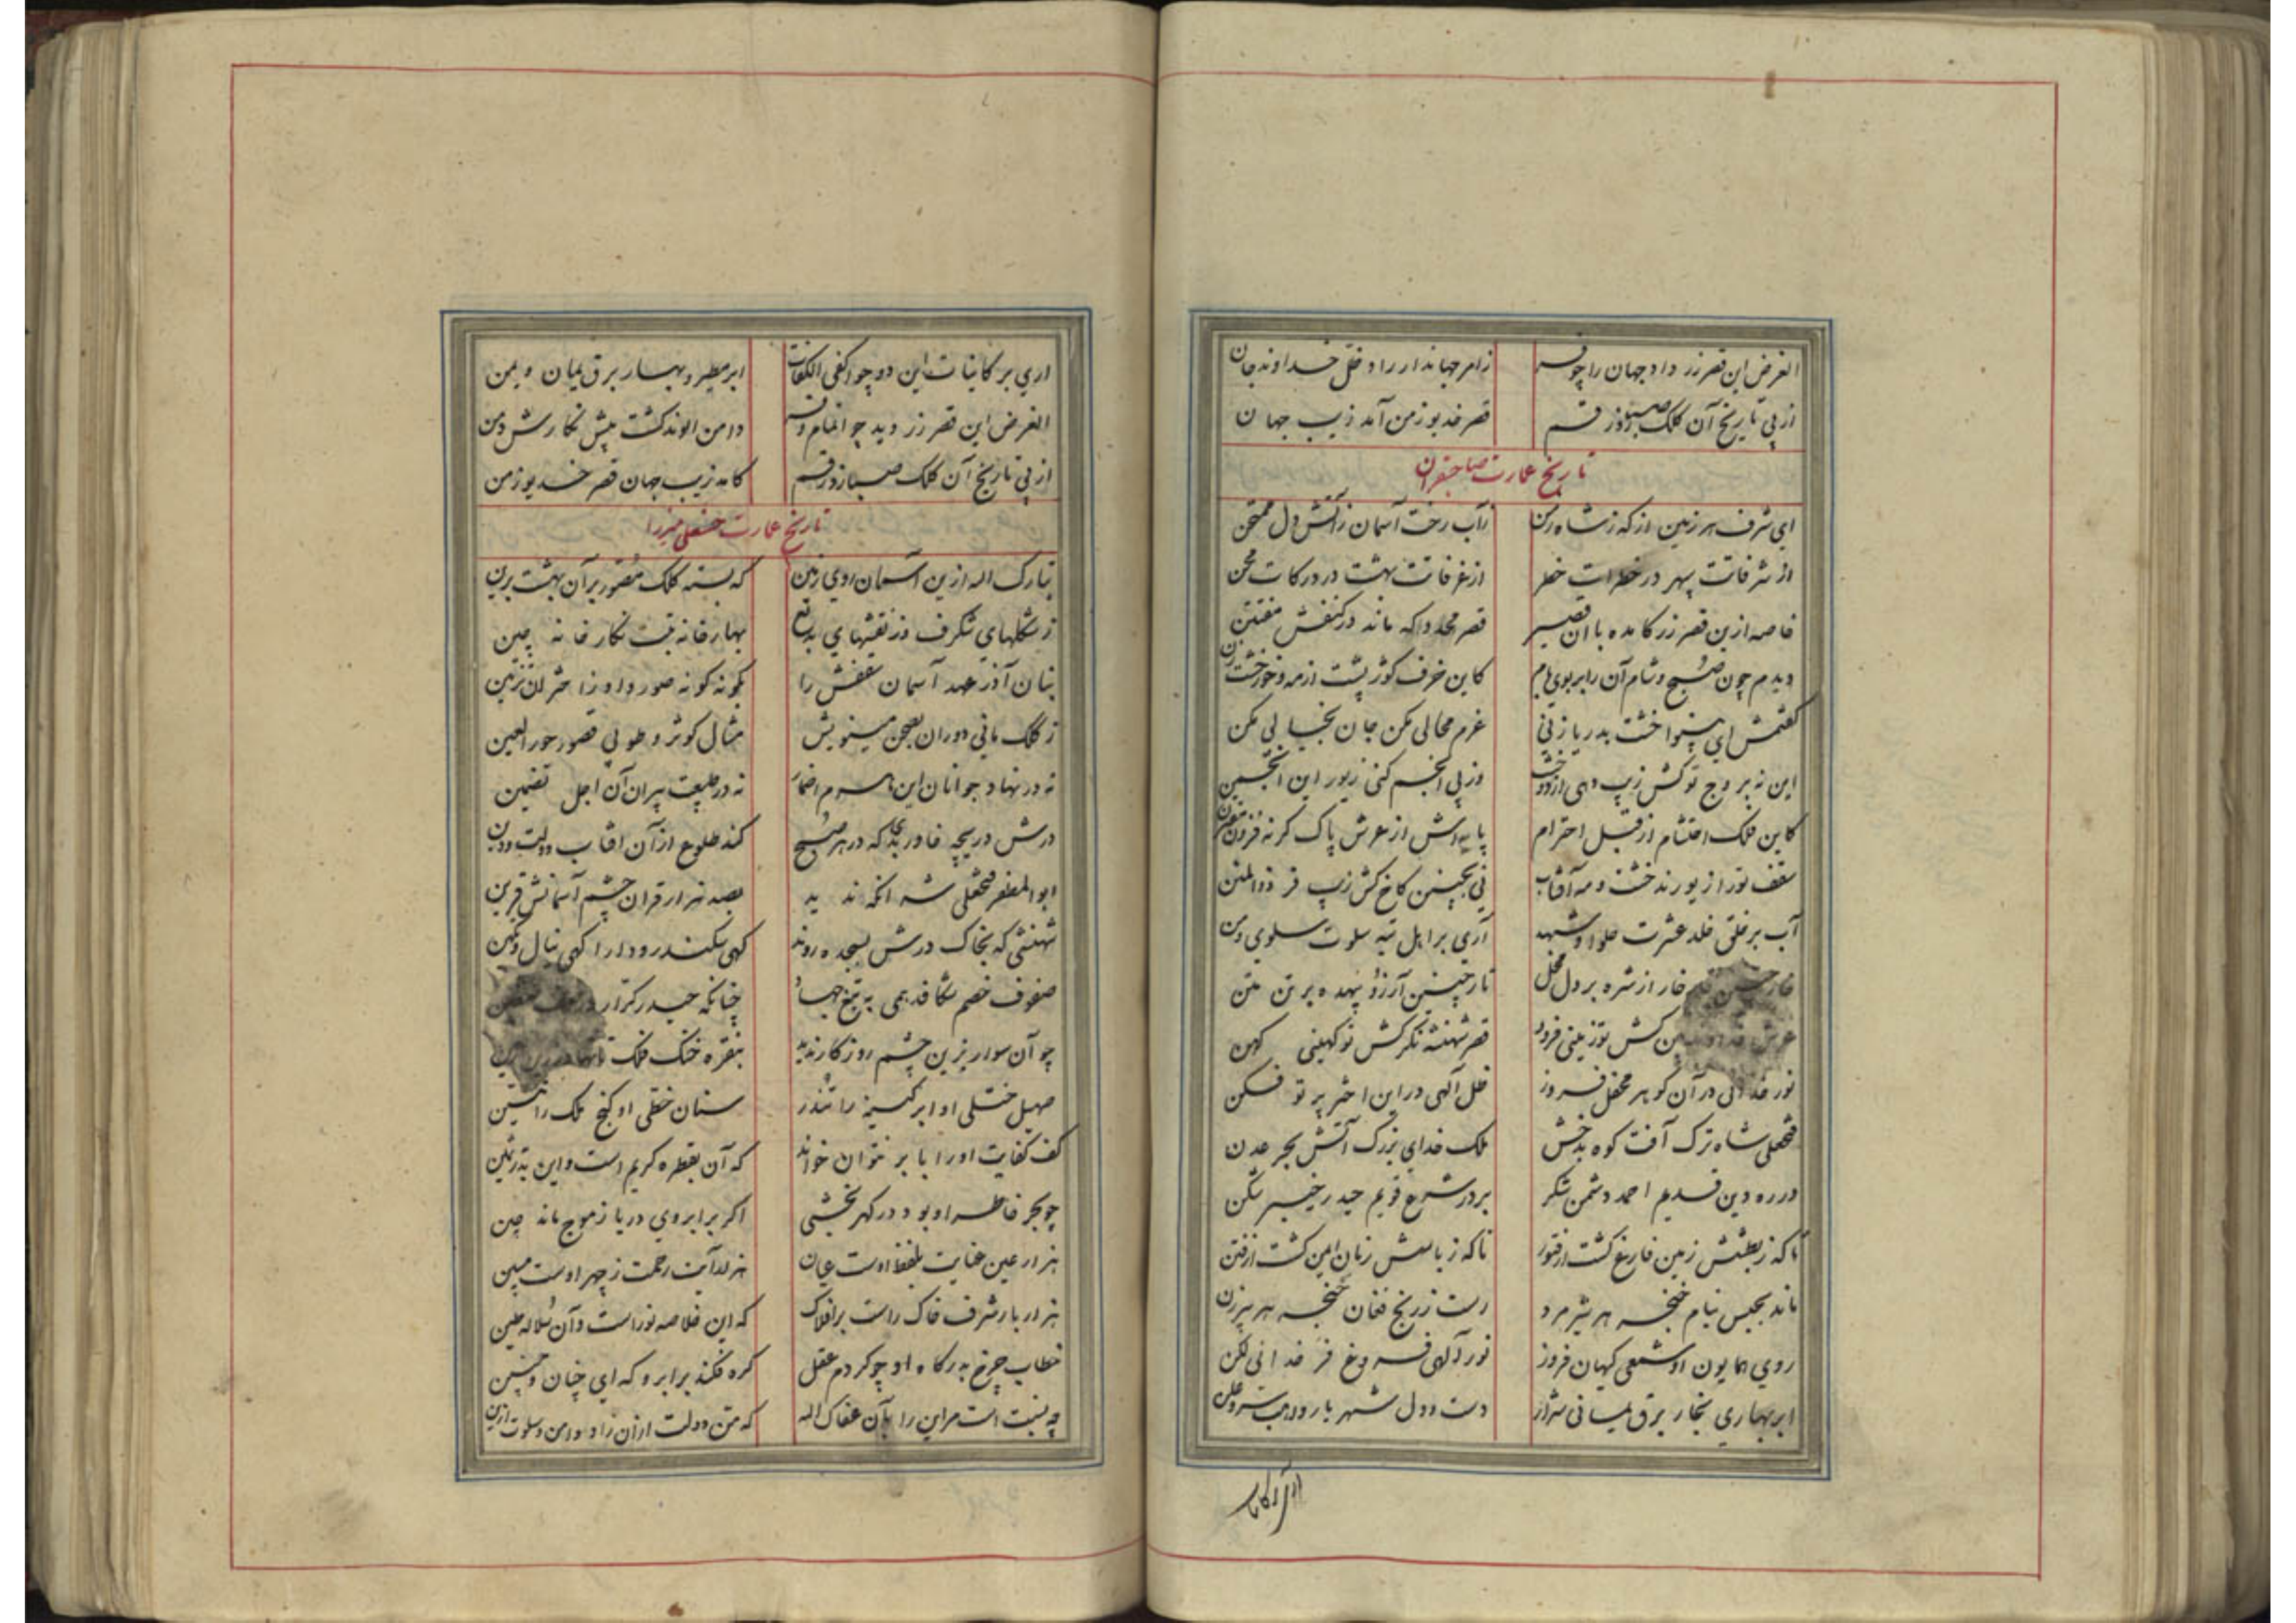 الغرض این قصر زر داد جهان را چو فر زامر جهاندار راد ظل خداوند جان
از پی تاریخ آن کلک صبا زد رقم قصر خدیو زمن آمد زیب جهان
تاریخ عمارت صاحبقران
ای شرف هر زمین از که ز شاه زمن زآب رخت آسمان زآتش دل ممتحن
از شرفاتت سپهر در خطرات خطر از غرفاتت بهشت در درکات محن
خاصه ازین قصر زر کامده با آن قصیر قصر مجدد اکه ماند در کنفش مفتتن
دیدم چون صبح و شام آن را بر بوی بام کاین خرف کوژ پشت از مه و خور خشت زن
گفتمش ای پینوا خشت بدریا زنی عزم محالی مکن جان بخیالی مکن
این نه بروج تو کش زیب دهی از دو خشت وز پی انجم کنی زیور این انجمن
کاین فلک احتشام از قبل احترام پایه اش از عرش پاک کرنه فزون
سقف تو را زیورند خشت و مه آفتاب نی بچنین کاخ کش زیب فر ذوالمنن
آب بر خلق خلد عشرت حلوا و شهد آری بر اهل تیه سلوت سلوی و من
خار از شره بر دل مخل تار چنین آرزو بیهده بر تن متن
کش تو زمینی فرود قصر شهنشه نگر کش تو کهینی کهن
نور خدائی در آن گوهر محفل فروز ظل آلهی در این اختر پرتو فکن
فتحعلی شاه ترک آفت کوه بدخش ملک خدای بزرگ آتش بحر عدن
در ره دین قدیم احمد دشمن شکر بر در شرع قویم حیدر خیبر شکن
تا که ز بطشش زمین فارغ گشت از فتور تا که ز باسش زمان ایمن گشت از فتن
ماند بحبس نیام خنجر هر شیر مرد رست ز رنج فغان حنجر هر پیرزن
روی همایون او شمعی کیهان فروز نور آلهی فروغ فر خدائی لکن
ابر بهاری بخار برق یمانی شرار دست و دل شهریار واهب سر و علن
اری بر کاینات
اری بر کاینات این دو چو اکفی الکفات ابر مطیر و بهار برق یمان و یمن
الغرض این قصر زر دید چو اتمام و فر دامن الوند گشت پیش نگارش دمن
از پی تاریخ آن کلک صبا زد رقم کامد زیب جهان قصر خدیو زمن
تاریخ عمارت حسنعلی میرزا
تبارک اله ازین آسمان روی زمین که بسته کلک مصور بر آن بهشت برین
ز شکلهای شگرف و ز نقشهای بدیع بهار خانه تبت نگار خانه چین
بنان آذر عهد آسمان سقفش را بگونه گونه صور داد ز اختران تزیین
ز کلک مانی دوران بصحن مینویش مثال کوثر و طوبی قصور حور العین
نه در نهاد جوانان این هرم اضمار نه در طبیعت پیران آن اجل تضمین
درش دریچه خاور بدی که در هر صبح کند طلوع از آن افتاب دولت و دین
ابوالمظفر فتحعلی شه انکه ندید بصد هزار قران چشم آسمانش قرین
شهنشهی که بخاک درش بسجده روند کهی سکندر و دارا کهی نیال و تکین
صفوف خصم شکافد همی به تیغ جهاد چنانکه حیدر کرار در صف صفین
چو آن سوار بزین چشم روزگار ندید بنقره خنک فلک
صهیل ختلی او ابر کینه را تندر سنان خطی او کنج ملک را تنین
کف کفایت او را با بر نتوان خواند که آن بقطره کریم است و این بدر ثمین
چو بحر خاطر او بود در گهر بخشی اگر بر ابروی دریا ز موج ماند چین
هزار عین عنایت بلفظ اوست عیان هزار آیت رحمت ز چهر اوست مبین
هزار بار شرف خاک راست بر افلاک که این خلاصه نور است و آن سلاله طین
خطاب چرخ بدرگاه او چو کردم عقل گره فکند بر ابرو که ای چنان و چنین
چه نسبت است مر این را بآن عفاک اله که من دولت از آن زاد و من و سلوت ازین